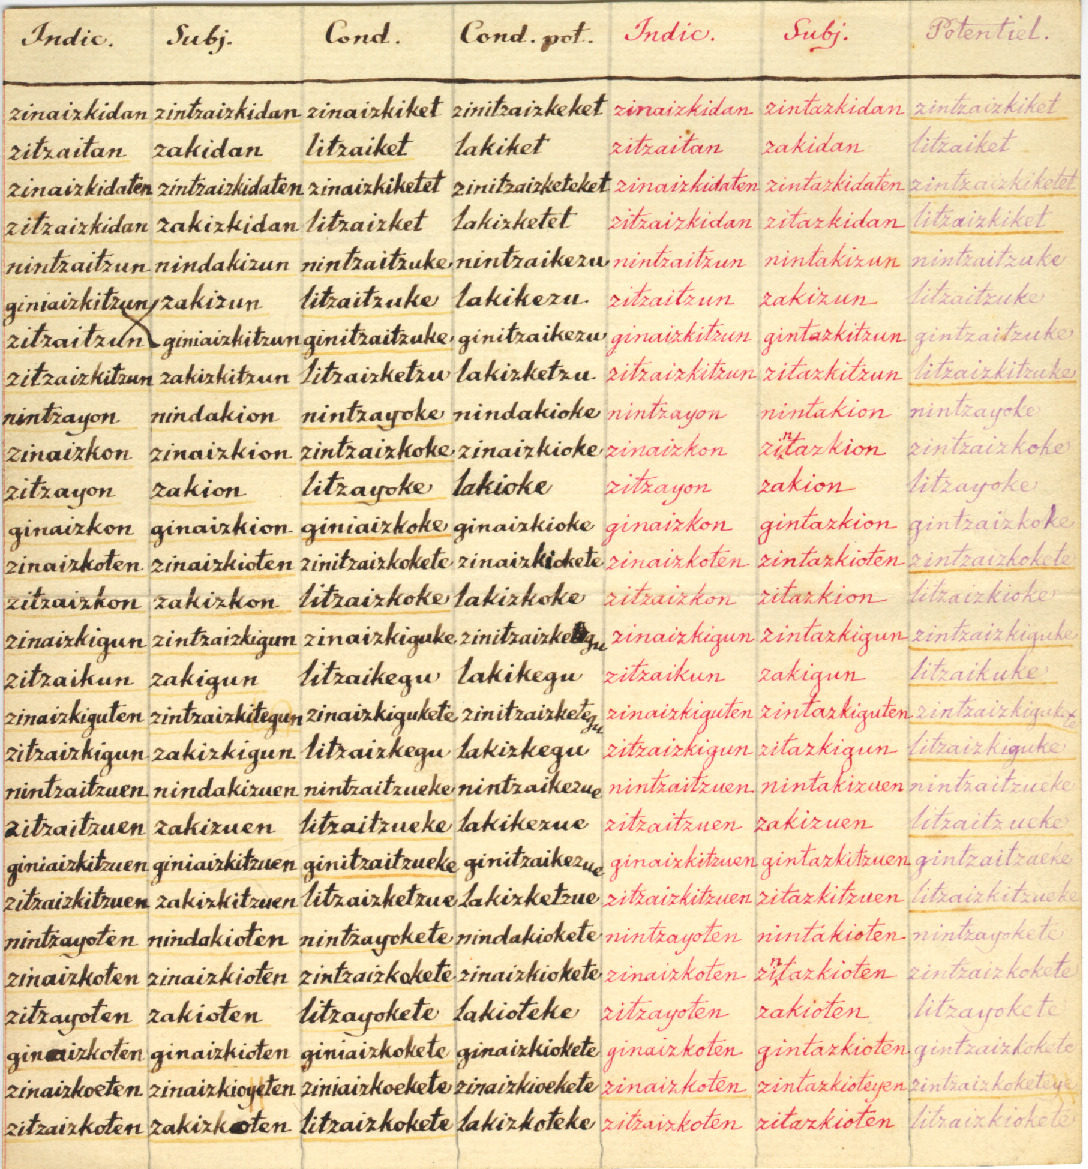 Indic. Subj. Cond. Cond. pot. Indic. Subj. Potentiel.
zinaizkidan zintzaizkidan zinaizkiket zinitzaizkeket zinaizkidan zintazkidan zintzaizkiket
zitzaitan zakidan litzaiket lakiket zitzaitan zakidan litzaiket
zinaizkidaten zintzaizkidaten zinaizkiketet zinitzaizketeket zinaizkidaten zintazkidaten zintzaizkiketet
zitzaizkidan zakizkidan litzaizket lakizketet zitzaizkidan zitazkidan litzaizkiket
nintzaitzun nindakizun nintzaitzuke nintzaikezu nintzaitzun nintakizun nintzaitzuke
giniaizkitzun zakizun litzaitzuke lakikezu zitzaitzun zakizun litzaitzuke
zitzaitzun giniaizkitzun ginitzaitzuke ginitzaikezu ginaizkitzun gintazkitzun gintzaitzuke
zitzaizkitzun zakizkitzun litzaizketzu lakizketzu zitzaizkitzun zitazkitzun litzaizkitzuke
nintzayon nindakion nintzayoke nindakioke nintzayon nintakion nintzayoke
zinaizkon zinaizkion zintzaizkoke zinaizkioke zinaizkon zintazkion zintzaizkoke
zitzayon zakion litzayoke lakioke zitzayon zakion litzayoke
ginaizkon ginaizkion giniaizkoke ginaizkioke ginaizkon gintazkion gintzaizkoke
zinaizkoten zinaizkioten zinitzaizkokete zinaizkiokete zinaizkoten zintazkioten zintzaizkokete
zitzaizkon zakizkon litzaizkoke lakizkoke zitzaizkon zitazkion litzaizkioke
zinaizkigun zintzaizkigun zinaizkiguke zinitzaizkegu zinaizkigun zintazkigun zintzaizkiguke
zitzaikun zakigun litzaikegu lakikegu zitzaikun zakigun litzaikuke
zinaizkiguten zintzaizkitegun zinaizkigukete zinitzaizketegu zinaizkiguten zintazkiguten zintzaizkigukete
zitzaizkigun zakizkigun litzaizkegu lakizkegu zitzaizkigun zitazkigun litzaizkiguke
nintzaitzuen nindakizuen nintzaitzueke nintzaikezue nintzaitzuen nintakizuen nintzaitzueke
zitzaitzuen zakizuen litzaitzueke lakikezue zitzaitzuen zakizuen litzaitzueke
giniaizkitzuen giniaizkitzuen ginitzaitzueke ginitzaikezue ginaizkitzuen gintazkitzuen gintzaitzueke
zitzaizkitzuen zakizkitzuen litzaizketzue lakizketzue zitzaizkitzuen zitazkitzuen litzaizkitzueke
nintzayoten nindakioten nintzayokete nindakiokete nintzayoten nintakioten nintzayokete
zinaizkoten zinaizkioten zintzaizkokete zinaizkiokete zinaizkoten zintazkioten zintzaizkokete
zitzayoten zakioten litzayokete lakioteke zitzayoten zakioten litzayokete
ginaizkoten ginaizkioten giniaizkokete ginaizkiokete ginaizkoten gintazkioten gintzaizkokete
zinaizkoeten zinaizkioyeten ziniaizkoekete zinaizkioekete zinaizkoten zintazkioteyen zintzaizkoketeye
zitzaizkoten zakizkoten litzaizkokete lakizkoteke zitzaizkoten zitazkioten litzaizkiokete